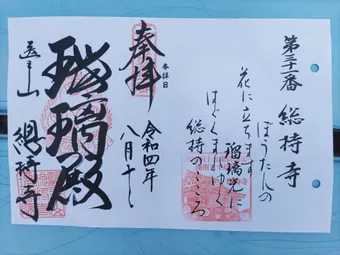 総持寺
ぼうたんの
花に立ちます
瑠璃光に
はぐくまれゆく
総持のこころ
奉拝
参拝日
令和四年
八月
瑠璃殿
医王山
總持寺